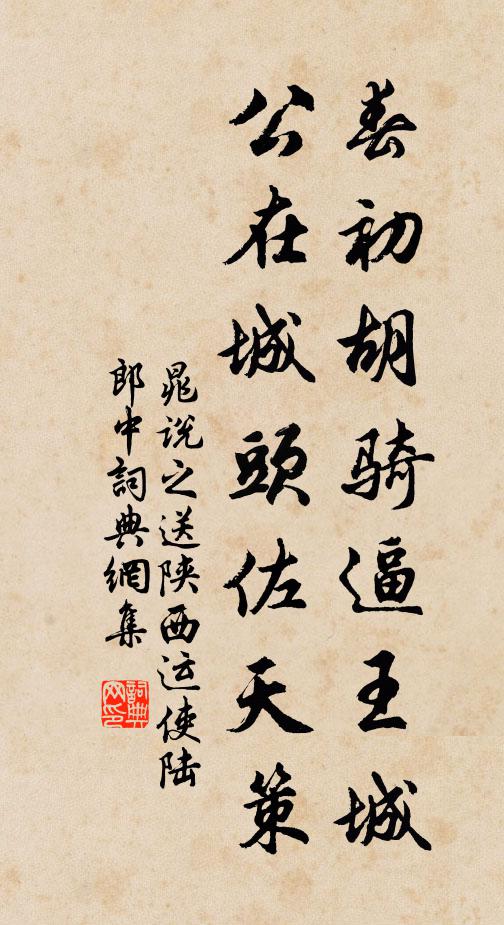 春初胡骑逼王城
公在城頭佐天策
晁说之送陕西运使陆
郎中詞典網集
詞典
网印